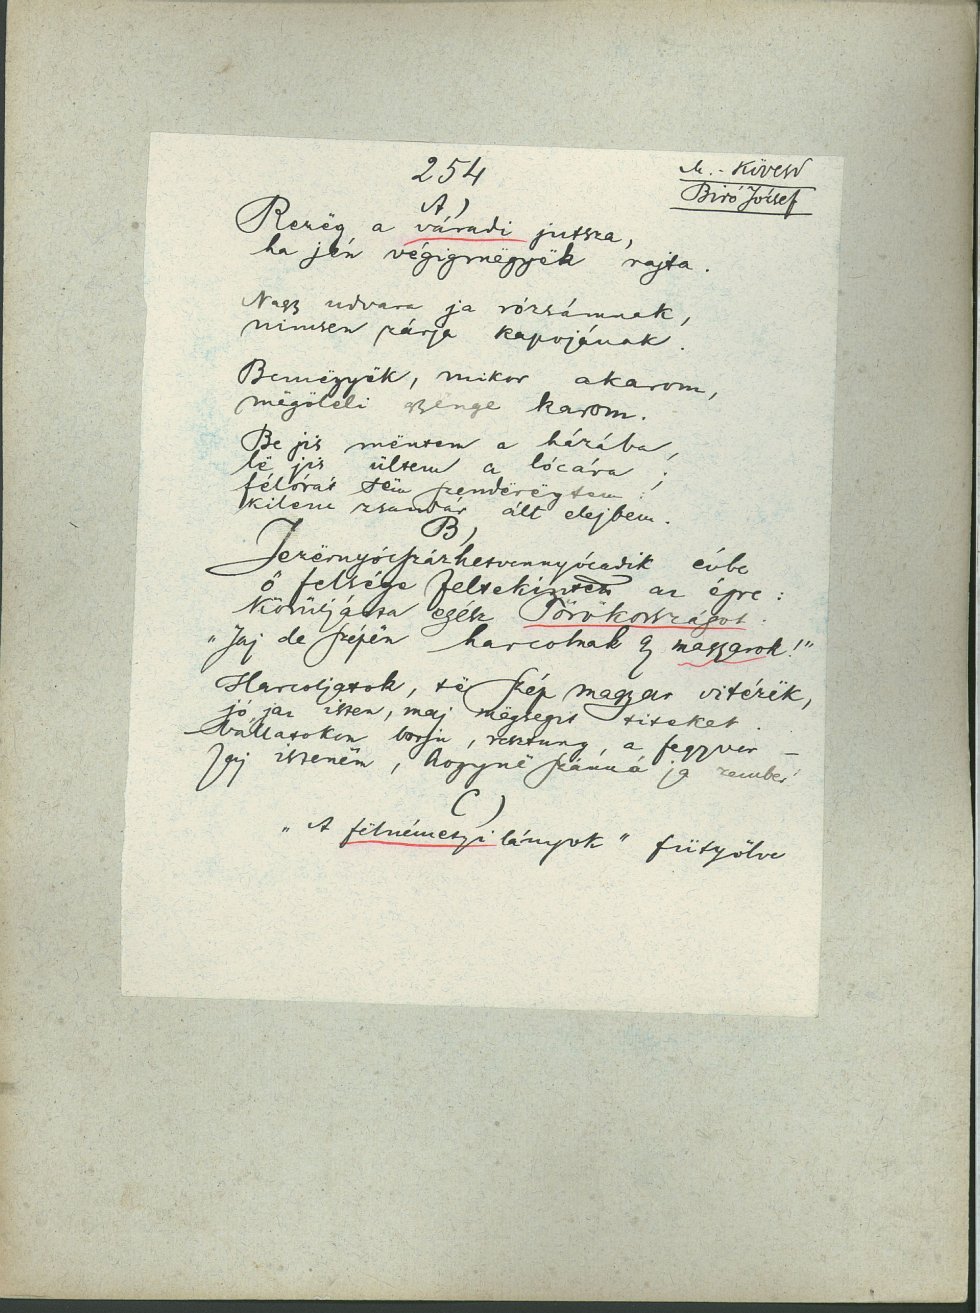 254
M.-Kövesd
Biró József
A)
Rezëg a váradi jutsza,
ha jén végigmëgyëk rajta.
Nagy udvara ja rózsámnak,
nincsen zárja kapujának.
Bemëgyëk, mikor akarom,
mëgöleli gyënge karom.
Be jis mëntem a házába,
lë jis ültem a lócára;
félórát sëm szenderëgtem:
kilenc zsandár ált elejbem.
B)
Jezërnyócszázhetvennyócadik évbe
ő felsége feltekintett az égre:
Körüljárta egész Törökországot:
"Jaj de szépën harcolnak a magyarok!"
Harcoljatok, të szép magyar vitézëk,
jó jaz isten, maj mëgsegit titeket.
Vállatokon borju, rostung, a fegyver –
Jaj istenëm, hogynë szánná ja zember!
C)
"A fëlnémetyi lányok" fütyölve